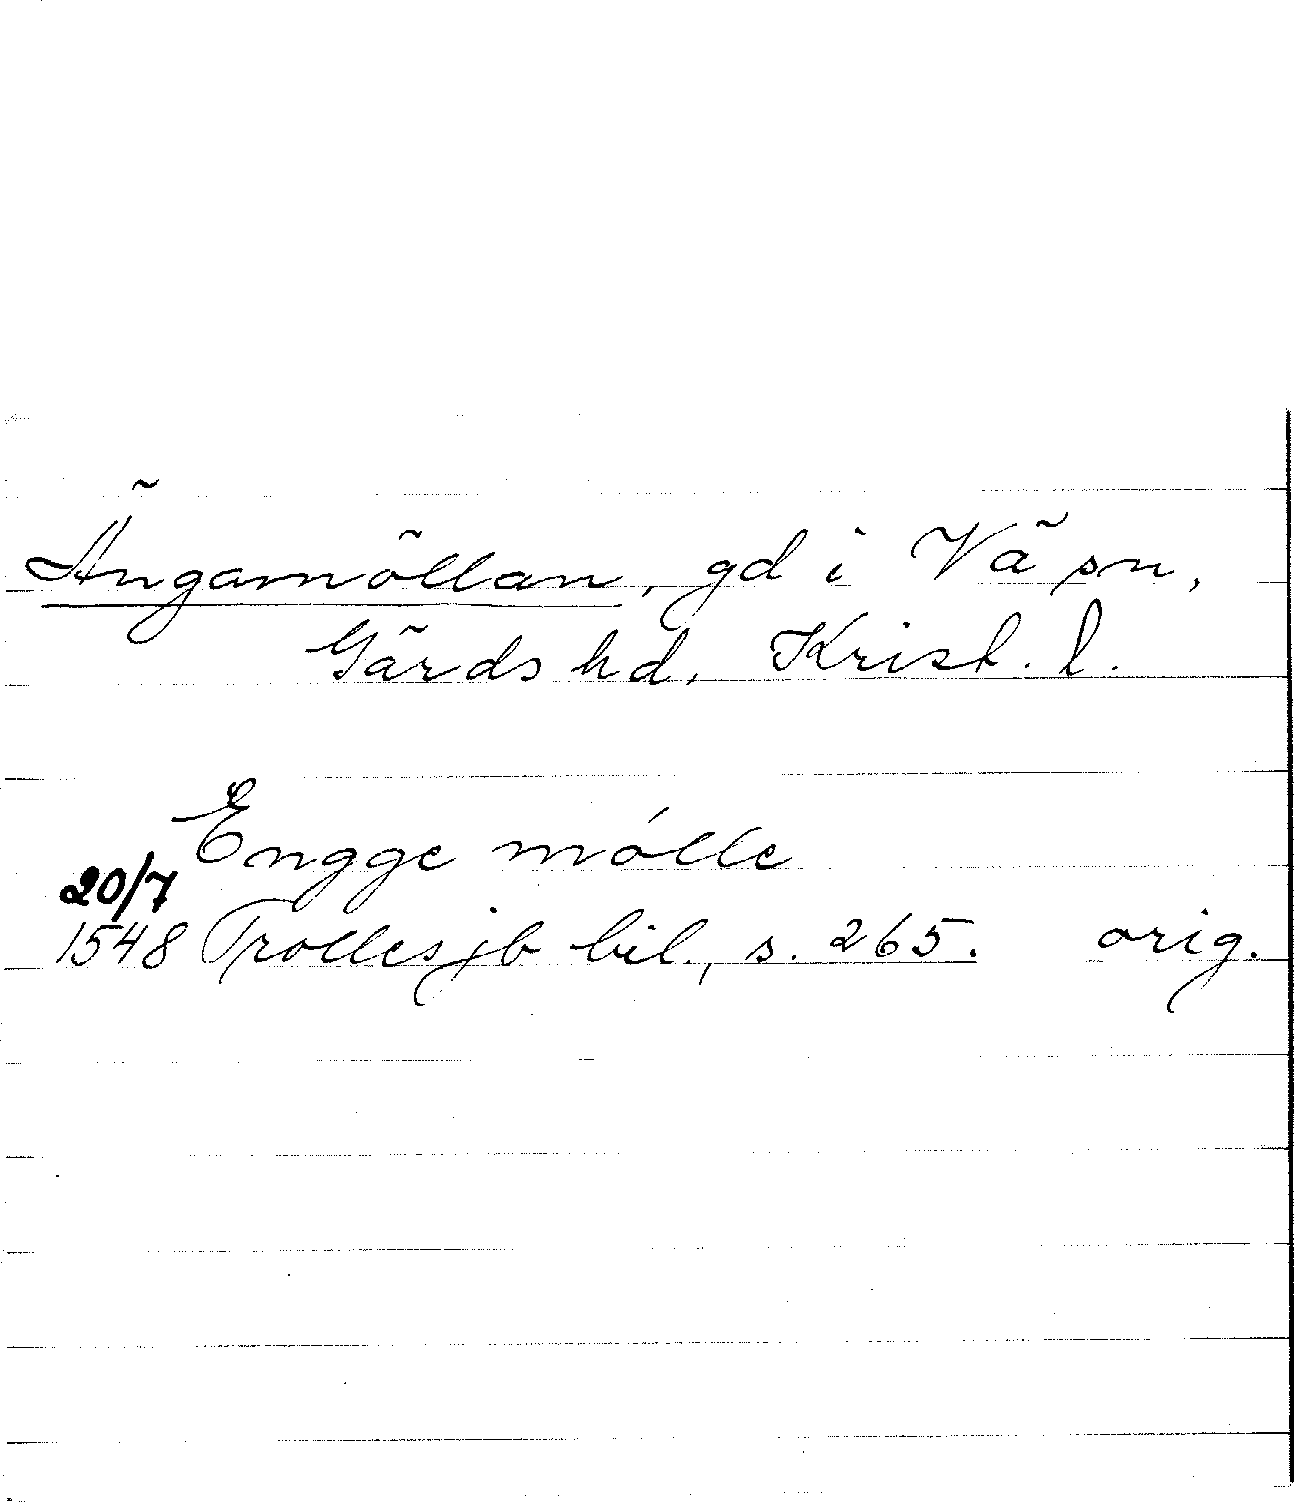 Ängamöllan, gd i Vä sn,
Gärds hd, Krist. l.
Engge mólle
20/7
1548 Trolles jb bil., s. 265. orig.